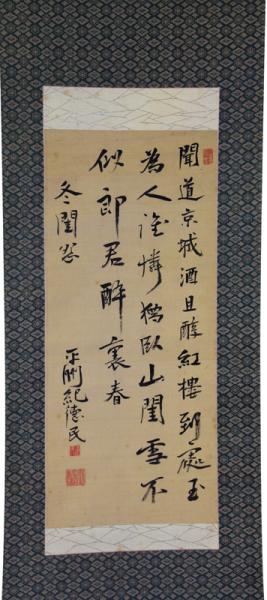 聞道京城酒且醇紅樓到處玉
為人誰憐獨臥山閨雪不
似郎君醉裏春
冬閨怨
平洲紀德民